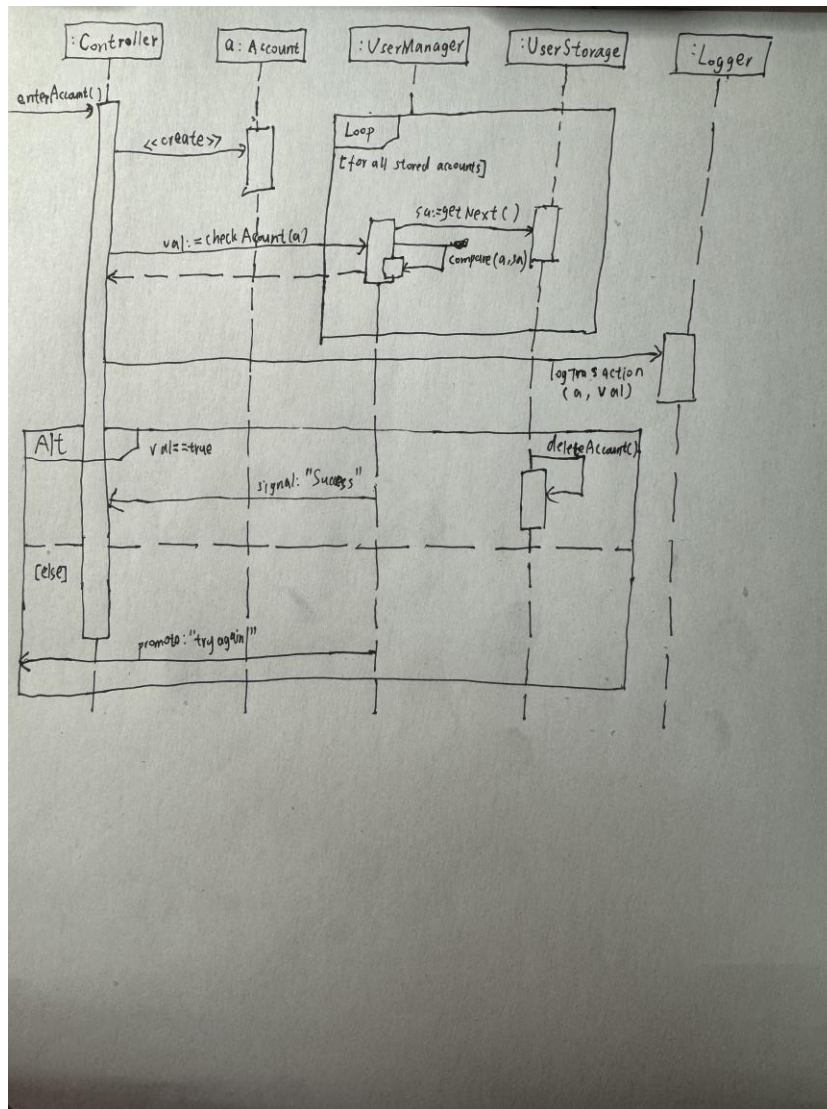 :Controller
a: Account
:UserManager
:UserStorage
:Logger
enterAccount()
<<create>>
Loop
[for all stored accounts]
sa:=getNext()
val:=checkAcount(a)
compare(a,sa)
logTransaction
(a, val)
Alt
val==true
deleteAccount()
signal: "Success"
[else]
promote: "try again!"